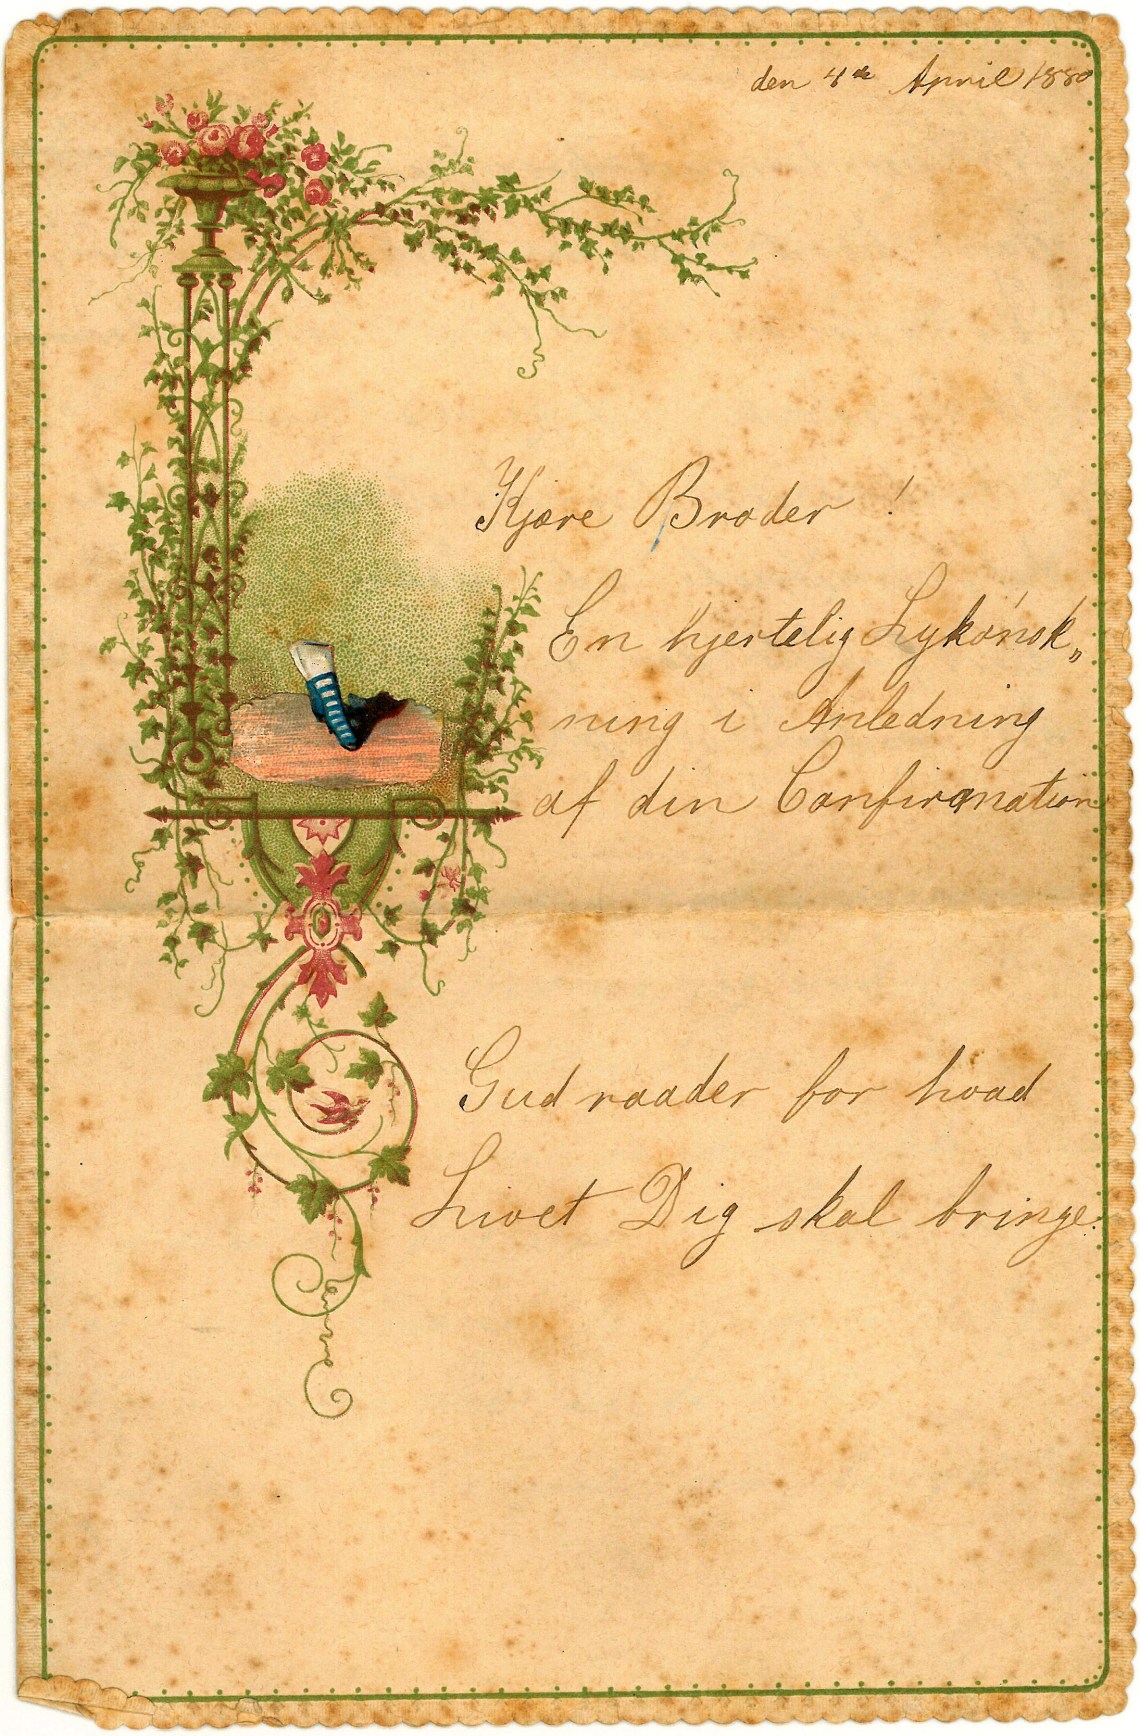 den 4de April 1880
Kjære Broder !
En hjertelig Lykónsk„
ning i Anledning
af din Confirmation
Gud raader for hvad
Livet Dig skal bringe.